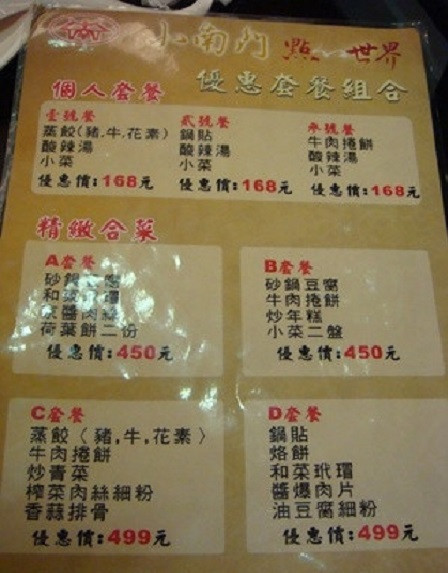 小南門 點 世界
優惠套餐組合
個人套餐
壹號餐
蒸餃(豬,牛,花素)
酸辣湯
小菜
優惠價:168元
貳號餐
鍋貼
酸辣湯
小菜
優惠價:168元
參號餐
牛肉捲餅
酸辣湯
小菜
優惠價:168元
精緻合菜
A套餐
砂鍋
和菜 瑁
醬肉絲
荷葉餅二份
優惠價:450元
B套餐
砂鍋豆腐
牛肉捲餅
炒年糕
小菜二盤
優惠價:450元
C套餐
蒸餃(豬,牛,花素)
牛肉捲餅
炒青菜
榨菜肉絲細粉
香蒜排骨
優惠價:499元
D套餐
鍋貼
烙餅
和菜玳瑁
醬爆肉片
油豆腐細粉
優惠價:499元